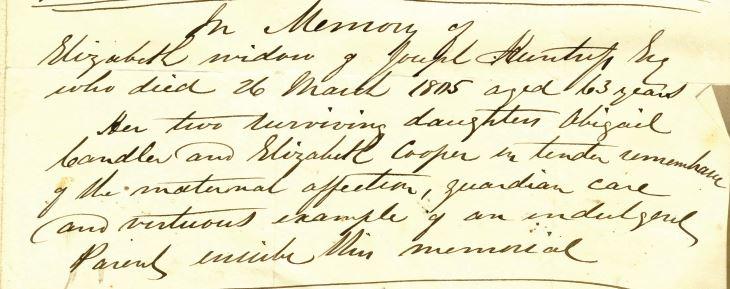 In Memory of
Elizabeth widow of Joseph Esq
who died 26 March 1805 aged 63 years
Her two surviving daughters Abigail
Candler and Elizabeth Cooper in tender remembrance
of the maternal affection, guardian care
and virtuous example of an indulgent
Parent inscribe this memorial